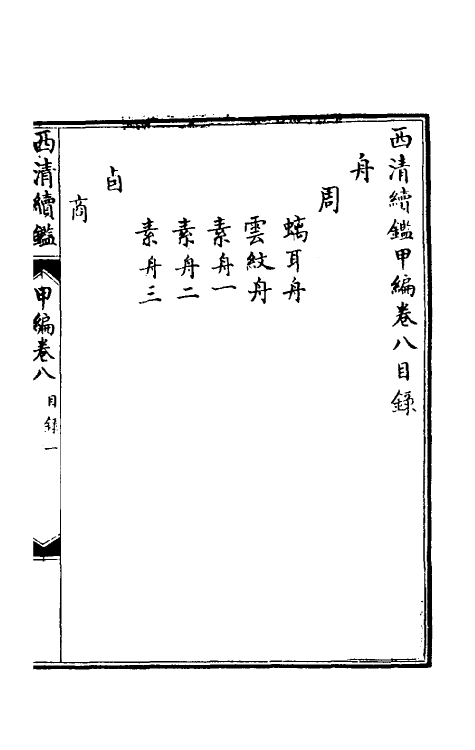 西清續鑑甲編卷八目錄
舟
周
螭耳舟
雲紋舟
素舟一
素舟二
素舟三
卣
商
西清續鑑 甲編卷八 目錄一